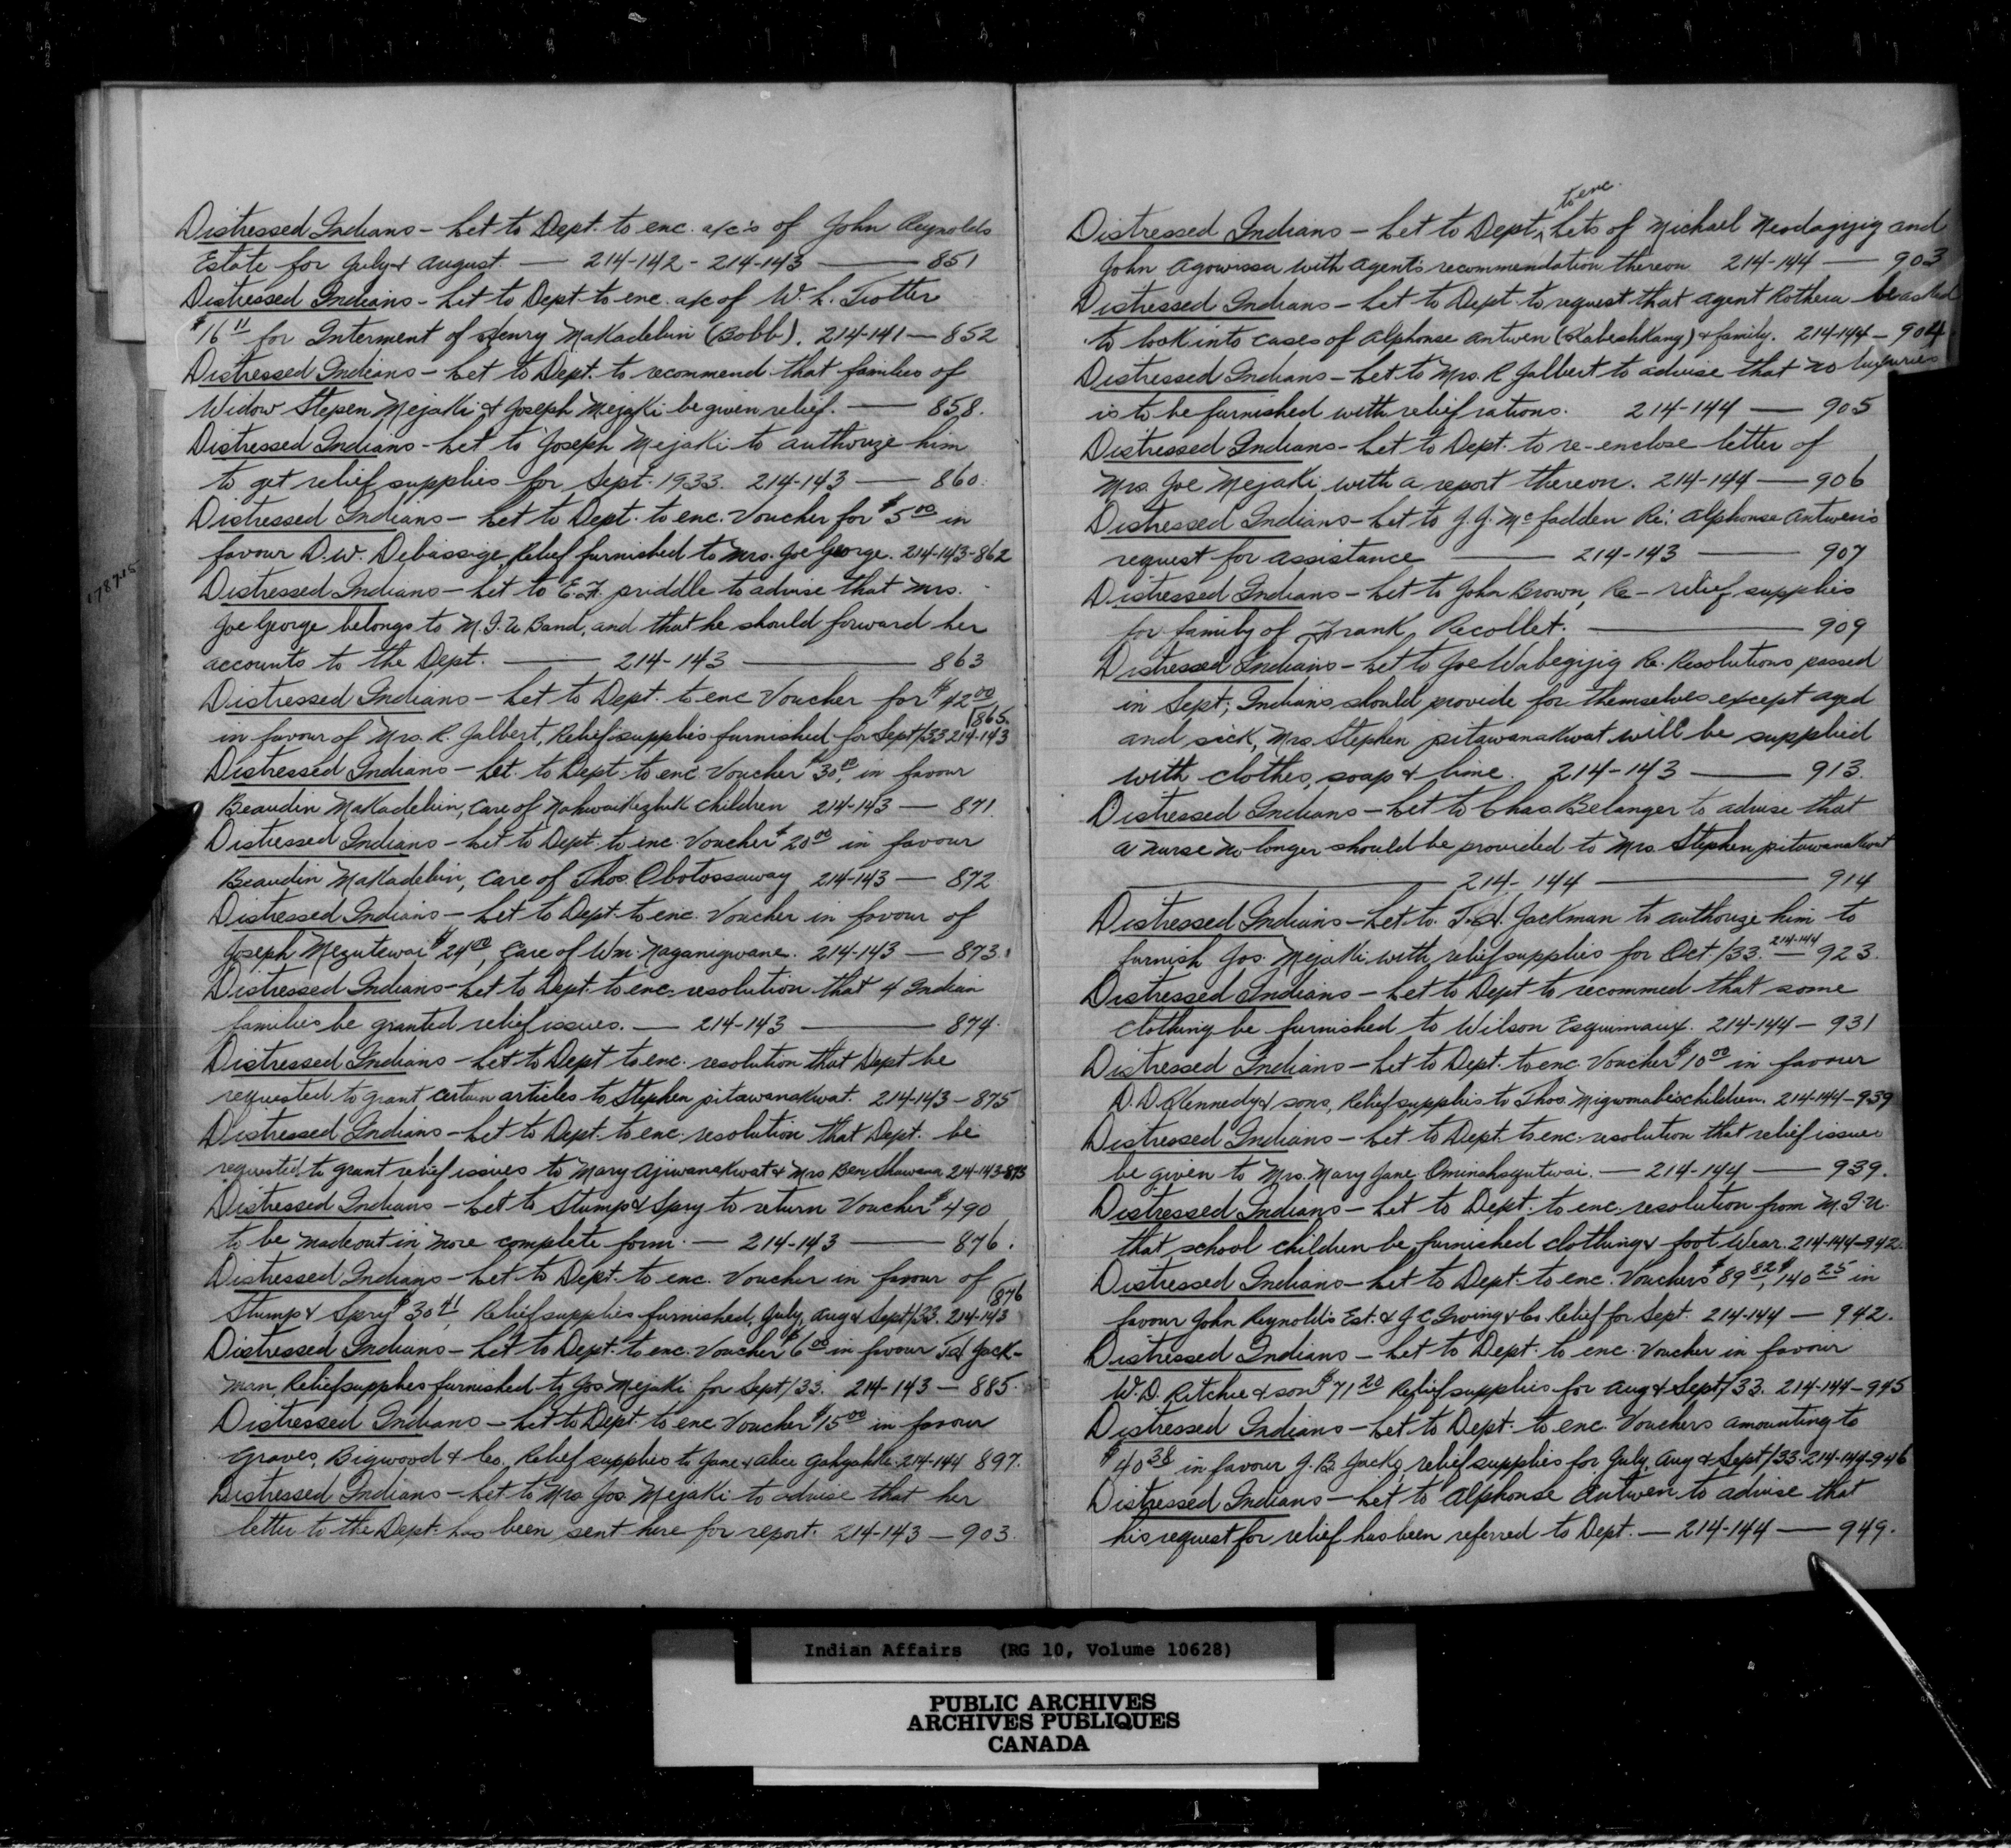 Distressed Indians - Let to Dept. to enc. a/c's of John Reynolds
Estate for July & August. — 214-142 - 214-143 — 851
Distressed Indians - Let to Dept to enc. a/c of W. L. Trotter
$16 11 for Interment of Henry Makadebin (Bobb). 214-141 — 852
Distressed Indians - Let to Dept. to recommend that families of
Widow Stepen Mejaki & Joseph Mejaki be given relief. — 858.
Distressed Indians - Let to Joseph Mejaki to authorize him
to get relief supplies for Sept. 1933. 214-143 — 860.
Distressed Indians - Let to Dept. to enc. Voucher for $5 00 in
favour D.W. Debassige, Relief furnished to Mrs. Joe George. 214-143-862
Distressed Indians - Let to E.F. Priddle to advise that Mrs.
Joe George belongs to M.I.U Band, and that he should forward her
accounts to the Dept. — 214-143 — 863
Distressed Indians - Let to Dept. to enc Voucher for $42 00
in favour of Mrs. R. Jalbert, Relief supplies furnished for Sept/33 214-143 865.
Distressed Indians - Let. to Dept. to enc. Voucher $30 00, in favour
Beaudin Makadebin, care of children 214-143 — 871.
Distressed Indians - Let to Dept. to enc. Voucher $20 00 in favour
Beaudin Makadebin, Care of Thos. Obotossaway 214-143 — 872
Distressed Indians - Let to Dept. to enc. Voucher in favour of
Joseph $24 00, Care of Wm. Naganigwane. 214-143 — 873.
Distressed Indians - Let to Dept. to enc. resolution that 4 Indian
families be granted relief issues. — 214-143 — 874.
Distressed Indians - Let to Dept to enc. resolution that Dept be
requested to grant certain articles to Stephen pitawanakwat. 214-143 - 875
Distressed Indians - Let to Dept. to enc. resolution that Dept. be
requested to grant relief issues to Mary Ajiwanakwat & Mrs Ben Shawana 214-143
Distressed Indians - Let to Stump & Spry to return Voucher $4 90
to be made out in more complete form. — 214-143 — 876.
Distressed Indians - Let to Dept. to enc. Voucher in favour of
Stump & Spry $30 41, Relief supplies furnished, July, Aug & Sept/33. 214-143 876
Distressed Indians - Let to Dept. to enc. Voucher $6 00 in favour Jack-
man, Relief supplies furnished to Jos Mejaki for Sept/33. 214-143 — 885.
Distressed Indians - Let to Dept. to enc Voucher $15 00 in favour
Graves, Bigwood & Co., Relief supplies to Jane & Alice 214-144 897.
Distressed Indians - Let to Mrs Jos. Mejaki to advise that her
letter to the Dept. has been sent here for report. 214-143 — 903.
to enc.
Distressed Indians - Let to Dept, Lets of Michael Neodagijig and
John Agowissa with agent's recommendation thereon 214-144 — 903
Distressed Indians - Let to Dept. to request that agent Rothera be asked
to look into cases of Alphonse Antwen (Kabeshkang) & family. 214-144 — 904
Distressed Indians - Let to Mrs. R Jalbert to advise that no luxuries
is to be furnished with relief rations. 214-144 — 905
Distressed Indians - Let to Dept. to re-enclose letter of
Mrs. Joe Mejaki with a report thereon. 214-144 — 906
Distressed Indians - Let to J.J. McFadden Re: Alphonse Antwen's
request for assistance — 214-143 — 907
Distressed Indians - Let to John Brown, Re - relief supplies
for family of Frank Recollet. — 909
Distressed Indians - Let to Joe Wabegijig Re. Resolutions passed
in Sept; Indians should provide for themselves except aged
and sick, Mrs. Stephen pitawanakwat will be supplied
with clothes, soap & lime. 214-143 — 913.
Distressed Indians - Let to Chas. Belanger to advise that
a nurse no longer should be provided to Mrs. Stephen pitawanakwat
— 214-144 — 914
Distressed Indians - Let to. Jackman to authorize him to
furnish Jos. Mejaki with relief supplies for Oct/33. 214-144 — 923.
Distressed Indians - Let to Dept to recommed that some
clothing be furnished to Wilson Esquimaux. 214-144 — 931
Distressed Indians - Let to Dept. to enc. Voucher $10 00 in favour
A. D. Kennedy & sons, Relief supplies to Thos. children. 214-144-939
Distressed Indians - Let to Dept. to enc. resolution that relief issue
be given to Mrs. Mary Jane — 214-144 — 939.
Distressed Indians - Let to Dept. to enc. resolution from M.I.U.
that school children be furnished clothing & foot wear. 214-144-942
Distressed Indians - Let to Dept. to enc. Vouchers $89 82, $140 25 in
favour John Reynold's Est. & J.C. Irving & Co. Relief for Sept. 214-144 — 942.
Distressed Indians - Let to Dept. to enc. Voucher in favour
W.D. Ritchie & son $71 20 Relief supplies for Aug & Sept/33. 214-144-945
Distressed Indians - Let to Dept. to enc. Vouchers amounting to
$40 38 in favour J.B. relief supplies for July, Aug & Sept/33. 214-144-946
Distressed Indians - Let to Alphonse Antwen to advise that
his request for relief has been referred to Dept. — 214-144 — 949.
Indian Affairs (RG 10, Volume 10628)
PUBLIC ARCHIVES
ARCHIVES PUBLIQUES
CANADA